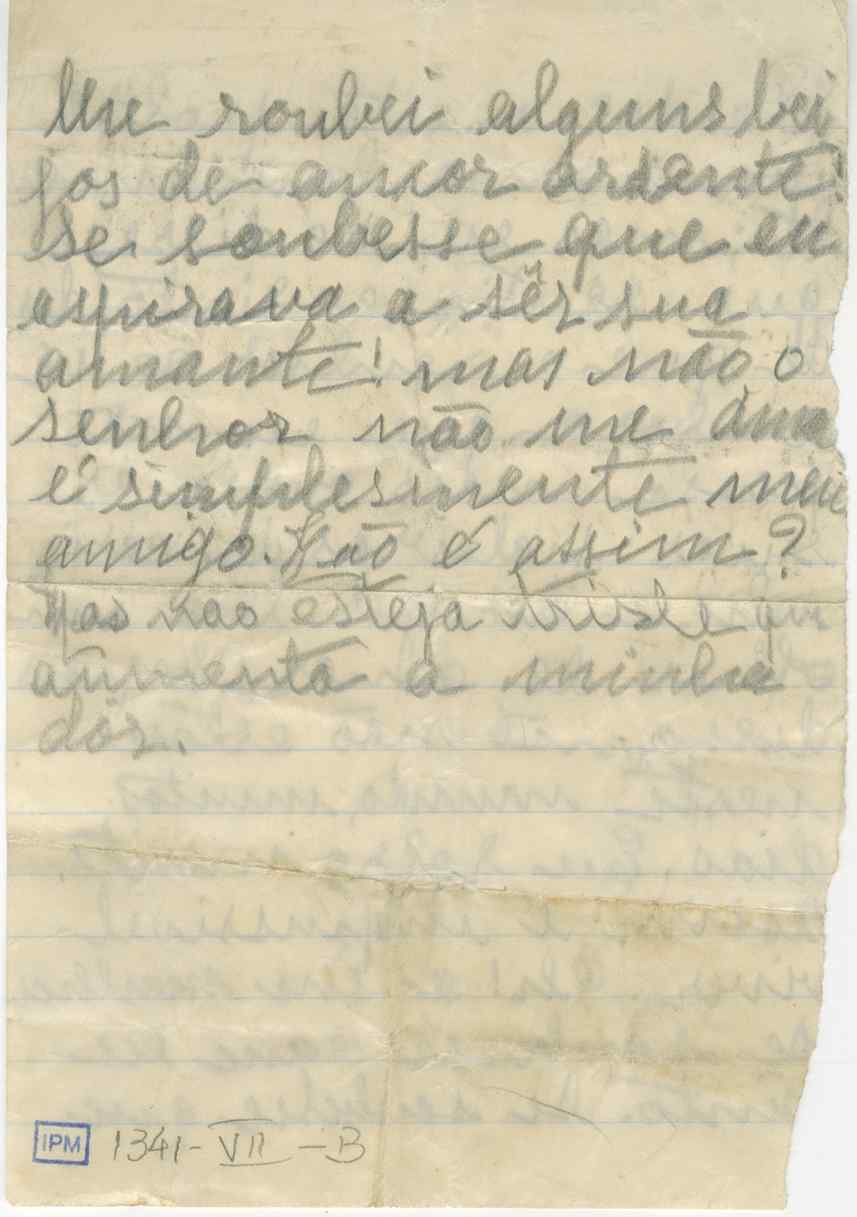 lhe roubei alguns bei
jos de amor ardente!
se soubesse que eu
aspirava a sêr sua
amante! mas não o
senhor não me ama
é simplesmente meu
amigo. Não é assim?
Mas não esteja triste que
aumenta a minha
dôr.
IPM 1341-VII-B